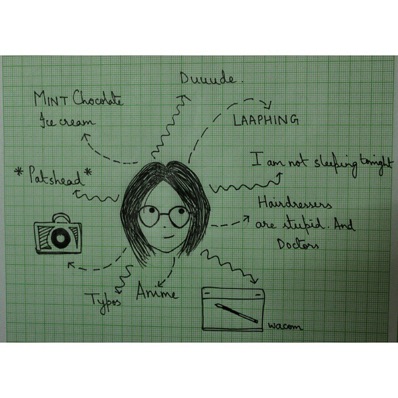 Duuude.
MINT Chocolate
Ice cream
LAAPHING
I am not sleeping tonight
*Patshead*
Hairdressers
are stupid. And
Doctors
Typos
Anime
wacom